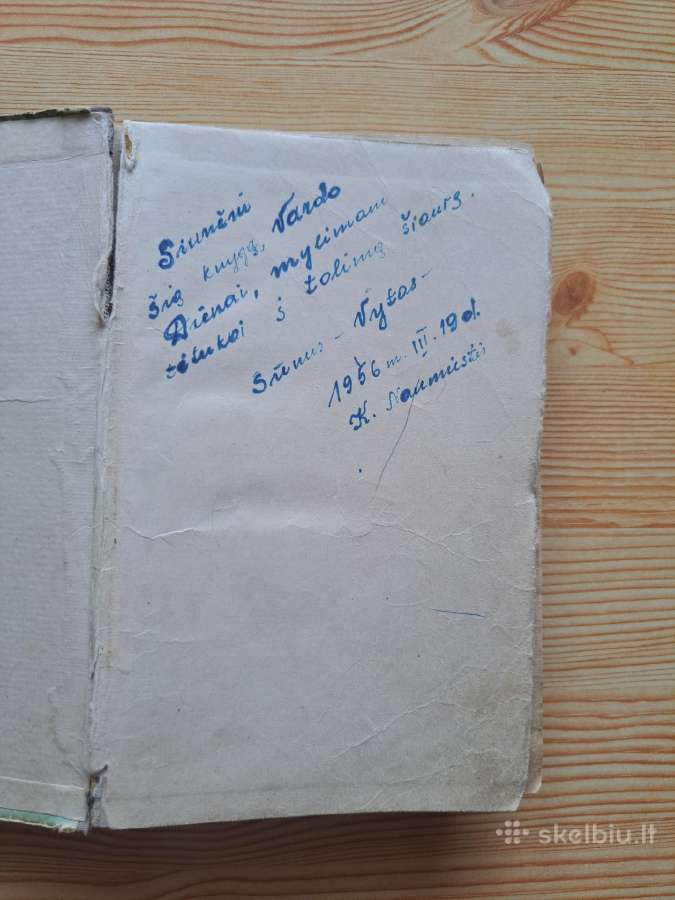 Siunčiu
šią knygą, Vardo
Dienai, mylimam
tėtukui į tolimą šiaurę.
Sūnus - Vytas-
1956 m. III. 19 d.
K. Naumiestis
skelbiu.lt